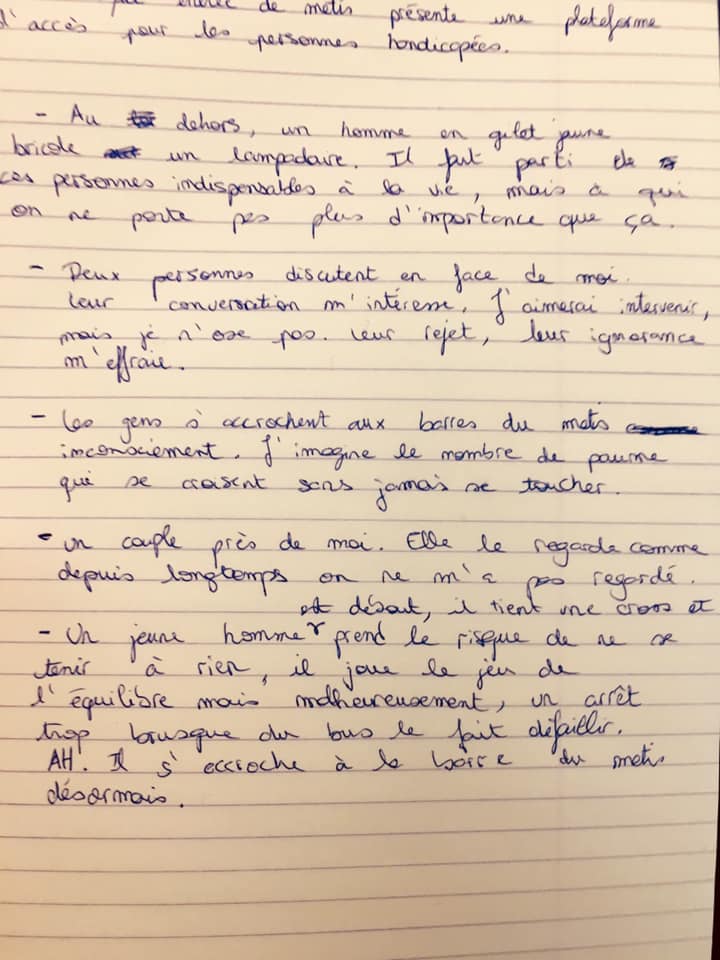 entrée de métis présente une plateforme
d'accès pour les personnes handicapées.
- Au dehors, un homme en gilet jaune
bricole un lampadaire. Il fait parti de
ces personnes indispensables à la vie, mais à qui
on ne porte pas plus d'importance que ça.
- Deux personnes discutent en face de moi.
leur conversation m'intéresse. J'aimerai intervenir,
mais je n'ose pas. leur rejet, leur ignorance
m'effraie.
- les gens s'accrochent aux barres du métis
inconsciement. J'imagine le nombre de paume
qui se croisent sans jamais se toucher.
- un couple près de moi. Elle le regarde comme
depuis longtemps on ne m'a pas regardé.
debout, il tient une cross et
- Un jeune homme prend le risque de ne se
tenir à rien, il joue le jeu de
l'équilibre mais malheureusement, un arrêt
trop brusque du bus le fait défaillir.
AH. Il s'accroche à la barre du metis
désormais.